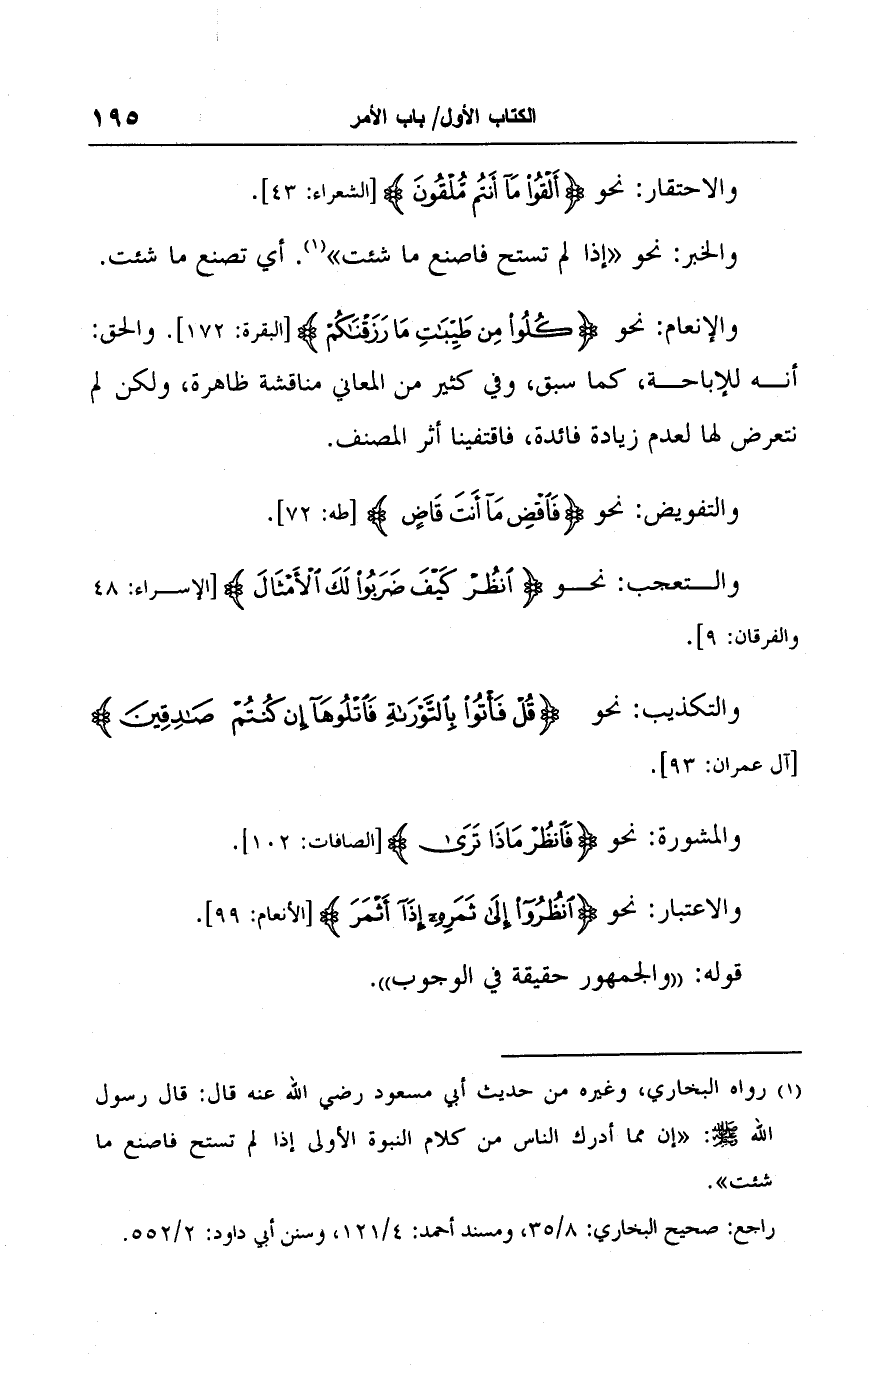 الكتاب الأول/ باب الأمر ١٩٥
والاحتقار: نحو ﴿أَلْقُوا۟ مَآ أَنتُم مُّلْقُونَ﴾ [الشعراء: ٤٣].
والخبر: نحو «إذا لم تستح فاصنع ما شئت»(١). أي تصنع ما شئت.
والإنعام: نحو ﴿كُلُوا۟ مِن طَيِّبَٰتِ مَا رَزَقْنَٰكُمْ﴾ [البقرة: ١٧٢]. والحق:
أنه للإباحة، كما سبق، وفي كثير من المعاني مناقشة ظاهرة، ولكن لم
نتعرض لها لعدم زيادة فائدة، فاقتفينا أثر المصنف.
والتفويض: نحو ﴿فَٱقْضِ مَآ أَنتَ قَاضٍ﴾ [طه: ٧٢].
والتعجب: نحو ﴿ٱنظُرْ كَيْفَ ضَرَبُوا۟ لَكَ ٱلْأَمْثَالَ﴾ [الإسراء: ٤٨
والفرقان: ٩].
والتكذيب: نحو ﴿قُلْ فَأْتُوا۟ بِٱلتَّوْرَىٰةِ فَٱتْلُوهَآ إِن كُنتُمْ صَٰدِقِينَ﴾
[آل عمران: ٩٣].
والمشورة: نحو ﴿فَٱنظُرْ مَاذَا تَرَىٰ﴾ [الصافات: ١٠٢].
والاعتبار: نحو ﴿ٱنظُرُوٓا۟ إِلَىٰ ثَمَرِهِۦٓ إِذَآ أَثْمَرَ﴾ [الأنعام: ٩٩].
قوله: ((والجمهور حقيقة في الوجوب)).
(١) رواه البخاري، وغيره من حديث أبي مسعود رضي الله عنه قال: قال رسول
الله ﷺ: «إن مما أدرك الناس من كلام النبوة الأولى إذا لم تستح فاصنع ما
شئت».
راجع: صحيح البخاري: ٣٥/٨، ومسند أحمد: ١٢١/٤، وسنن أبي داود: ٥٥٢/٢.